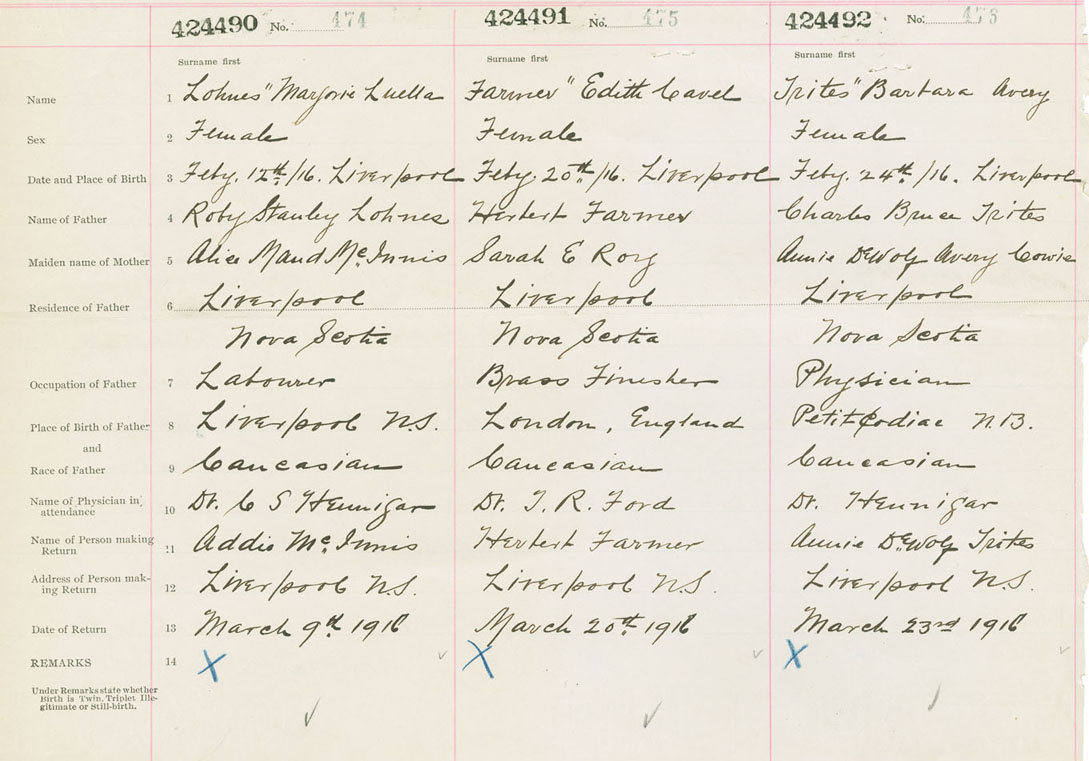 424490 No. 474 424491 No. 475 424492 No. 476
Surname first Surname first Surname first
Name 1 Lohnes" Marjorie Luella Farmer" Edith Cavel Trites" Barbara Avery
Sex 2 Female Female Female
Date and Place of Birth 3 Feby. 12th/16. Liverpool Feby. 20th/16. Liverpool Feby. 24th/16. Liverpool
Name of Father 4 Roby Stanley Lohnes Herbert Farmer Charles Bruce Trites
Maiden name of Mother 5 Alice Maud McInnis Sarah E Roy Annie DeWolf Avery Cowie
Residence of Father 6 Liverpool Liverpool Liverpool
Nova Scotia Nova Scotia Nova Scotia
Occupation of Father 7 Labourer Brass Finisher Physician
Place of Birth of Father 8 Liverpool N.S. London, England Petitcodiac N.B.
and
Race of Father 9 Caucasian Caucasian Caucasian
Name of Physician in attendance 10 Dr. C S Hennigar Dr. T. R. Ford Dr. Hennigar
Name of Person making Return 11 Addie McInnis Herbert Farmer Annie DeWolf Trites
Address of Person mak-
ing Return 12 Liverpool N.S. Liverpool N.S. Liverpool N.S.
Date of Return 13 March 9th 1916 March 20th 1916 March 23rd 1916
REMARKS 14 X X X
Under Remarks state whether
Birth is Twin, Triplet Ille-
gitimate or Still-birth.